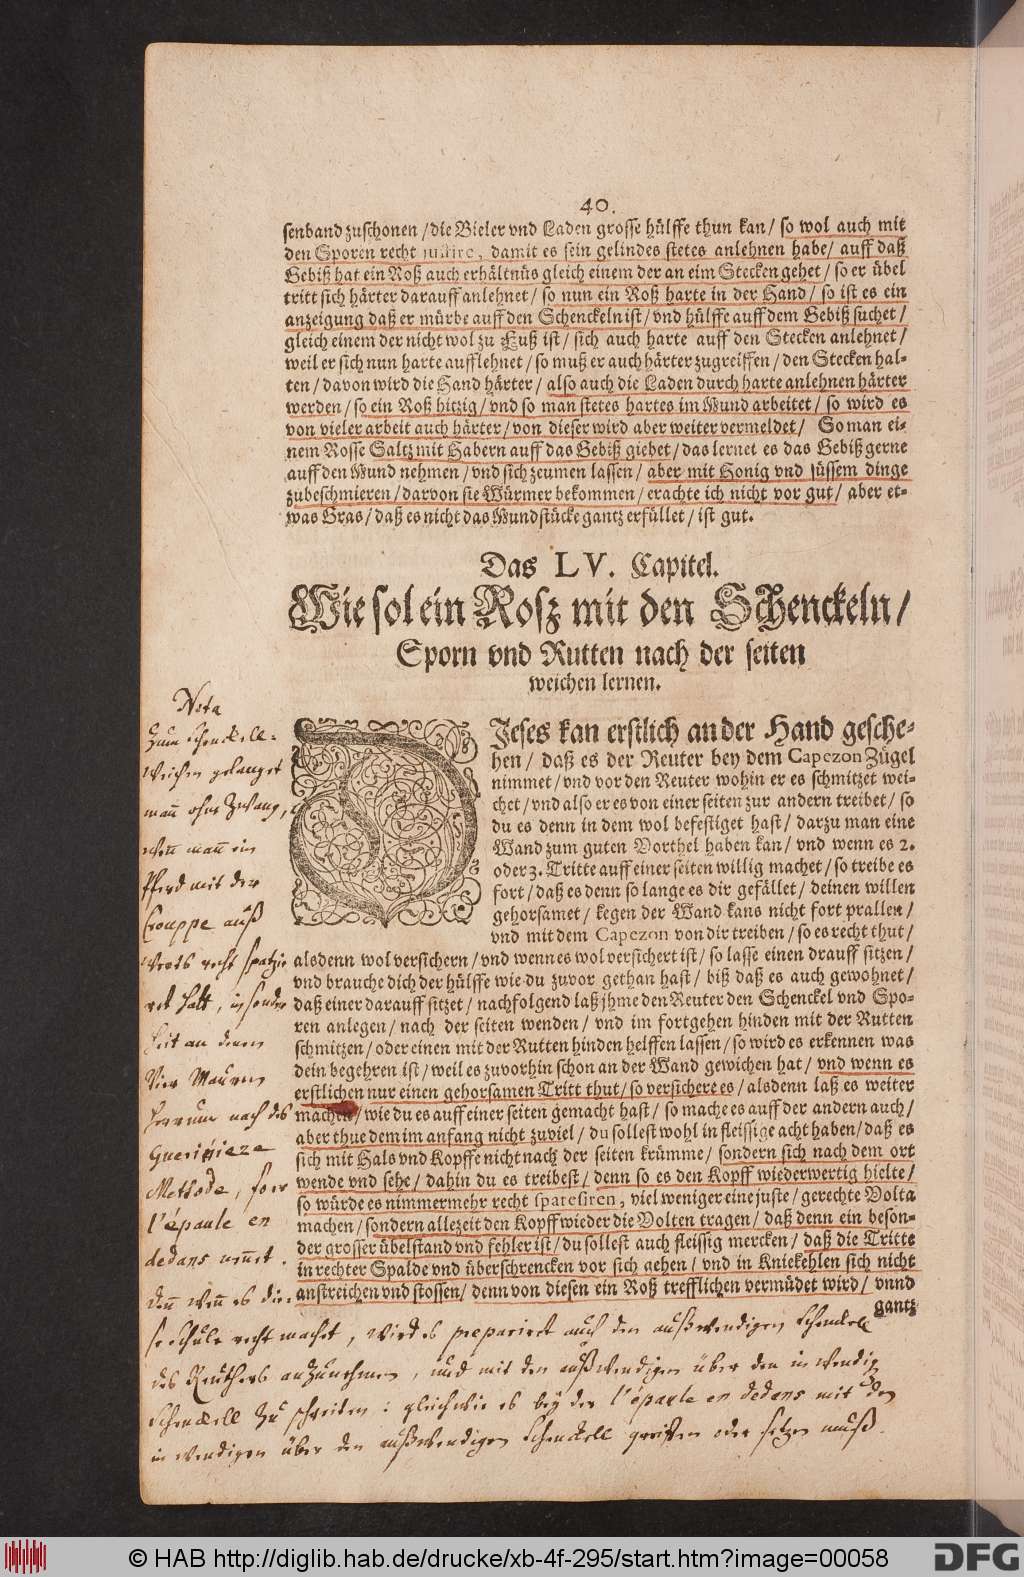 40.
senband zuschonen / die Bieler vnd Laden grosse hülffe thun kan / so wol auch mit
den Sporen recht justire, damit es sein gelindes stetes anlehnen habe / auff daß
Gebiß hat ein Roß auch erhältnüs gleich einem der an eim Stecken gehet / so er übel
tritt sich härter darauff anlehnet / so nun ein Roß harte in der Hand / so ist es ein
anzeigung daß er mürbe auff den Schenckeln ist / vnd hülffe auff dem Gebiß suchet /
gleich einem der nicht wol zu Fuß ist / sich auch harte auff den Stecken anlehnet /
weil er sich nun harte aufflehnet / so muß er auch härter zugreiffen / den Stecken hal-
ten / davon wird die Hand härter / also auch die Laden durch harte anlehnen härter
werden / so ein Roß hitzig / vnd so man stetes hartes im Mund arbeitet / so wird es
von vieler arbeit auch härter / von dieser wird aber weiter vermeldet / So man ei-
nem Rosse Saltz mit Habern auff das Gebiß giebet / das lernet es das Gebiß gerne
auff den Mund nehmen / vnd sich zeumen lassen / aber mit Honig vnd süssem dinge
zubeschmieren / darvon sie Würmer bekommen / erachte ich nicht vor gut / aber et-
was Gras / daß es nicht das Mundstücke gantz erfüllet / ist gut.
Das LV. Capitel.
Wie sol ein Rosz mit den Schenckeln /
Sporn vnd Rutten nach der seiten
weichen lernen.
DJeses kan erstlich an der Hand gesche-
hen / daß es der Reuter bey dem Capezon Zügel
nimmet / vnd vor den Reuter wohin er es schmitzet wei-
chet / vnd also er es von einer seiten zur andern treibet / so
du es denn in dem wol befestiget hast / darzu man eine
Wand zum guten Vorthel haben kan / vnd wenn es 2.
oder 3. Tritte auff einer seiten willig machet / so treibe es
fort / daß es denn so lange es dir gefället / deinen willen
gehorsamet / kegen der Wand kans nicht fort prallen /
vnd mit dem Capezon von dir treiben / so es recht thut /
alsdenn wol versichern / vnd wenn es wol versichert ist / so lasse einen drauff sitzen /
vnd brauche dich der hülffe wie du zuvor gethan hast / biß daß es auch gewohnet /
daß einer darauff sitzet / nachfolgend laß jhme den Reuter den Schenckel vnd Spo-
ren anlegen / nach der seiten wenden / vnd im fortgehen hinden mit der Rutten
schmitzen / oder einen mit der Rutten hinden helffen lassen / so wird es erkennen was
dein begehren ist / weil es zuvorhin schon an der Wand gewichen hat / vnd wenn es
erstlichen nur einen gehorsamen Tritt thut / so versichere es / alsdenn laß es weiter
machen / wie du es auff einer seiten gemacht hast / so mache es auff der andern auch /
aber thue dem im anfang nicht zuviel / du sollest wohl in fleissige acht haben / daß es
sich mit Hals vnd Kopffe nicht nach der seiten krümme / sondern sich nach dem ort
wende vnd sehe / dahin du es treibest / denn so es den Kopff wiederwertig hielte /
so würde es nimmermehr recht sparesiren, viel weniger eine juste / gerechte Volta
machen / sondern allezeit den Kopff wieder die Volten tragen / daß denn ein beson-
der grosser übelstand vnd fehler ist / du sollest auch fleissig mercken / daß die Tritte
in rechter Spalde vnd überschrencken vor sich gehen / vnd in Kniekehlen sich nicht
anstreichen vnd stossen / denn von diesen ein Roß trefflichen vermüdet wird / vnnd
gantz
Nota
Zum schenckell-
weichen gelanget
man ohne Zwang,
wen man ein
Pferd mit der
Crouppe auß
werts recht spatzie
ret hatt, insonder
heit an denen
Vier Mauren
herrum nach des
Guerinieze
Methode, so er
l'épaule en
dedans nennet.
den wen es die-
se schule recht machet, wird es preparirt auch den außwendigen schenckell
des Reuthers anzunehmen, und mit den außwendigen über den inwendig
schenckell zu schreiten: gleich wie es bey der l'épaule en dedans mit den
inwendigen über den außwendigen schenckell greiffen oder setzen muß.
© HAB http://diglib.hab.de/drucke/xb-4f-295/start.htm?image=00058
DFG